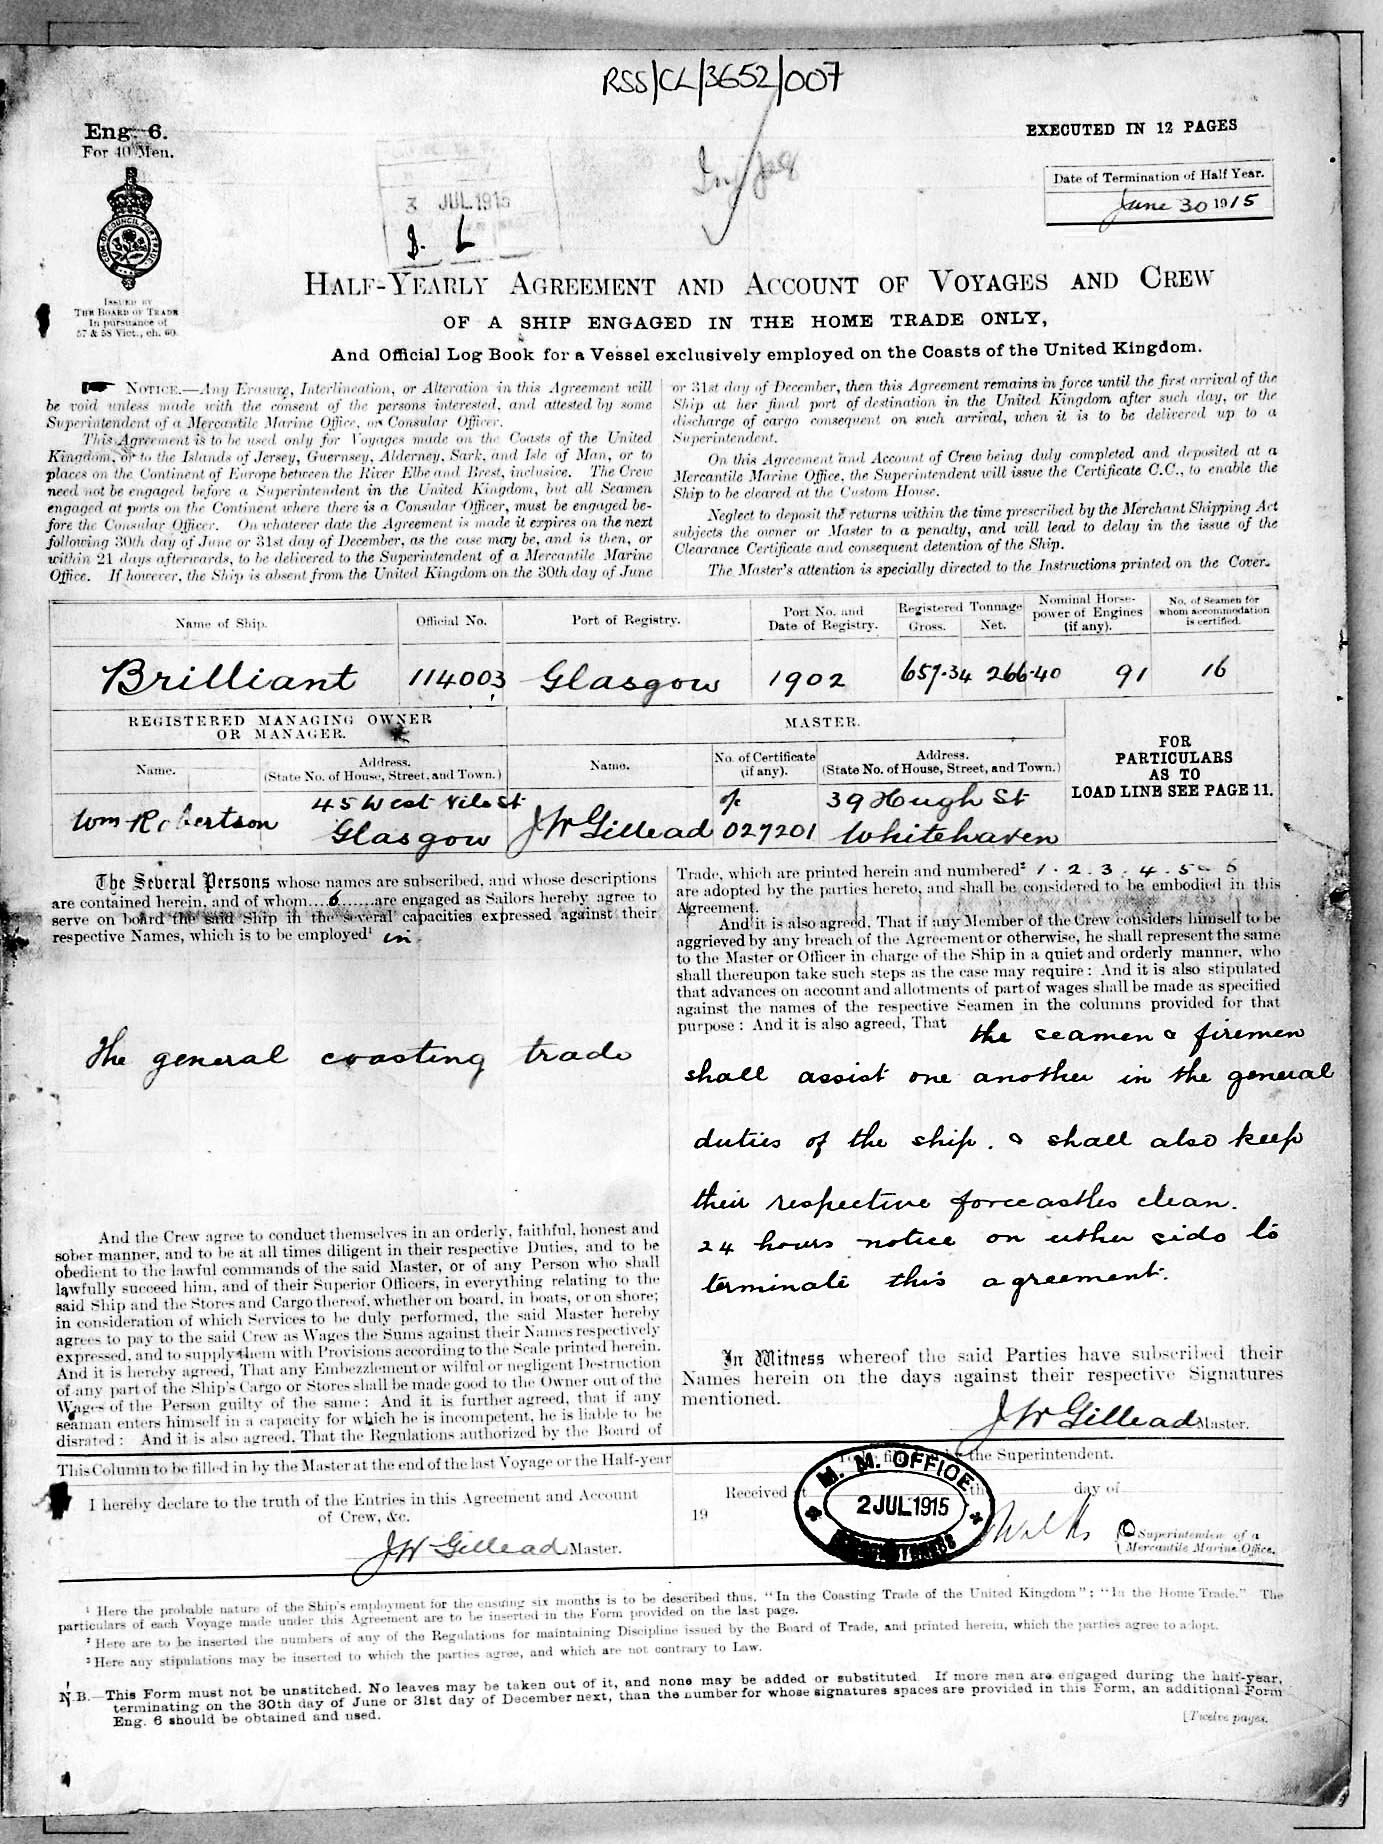 RSS/CL/3652/007
Eng. 6.
For 40 Men.
EXECUTED IN 12 PAGES
Date of Termination of Half Year.
June 30 1915
3 JUL 1915
COM. OF COUNCIL FOR TRADE
ISSUED BY
THE BOARD OF TRADE
In pursuance of
57 & 58 Vict., ch. 60.
HALF-YEARLY AGREEMENT AND ACCOUNT OF VOYAGES AND CREW
OF A SHIP ENGAGED IN THE HOME TRADE ONLY,
And Official Log Book for a Vessel exclusively employed on the Coasts of the United Kingdom.
NOTICE.—Any Erasure, Interlineation, or Alteration in this Agreement will
be void unless made with the consent of the persons interested, and attested by some
Superintendent of a Mercantile Marine Office, or Consular Officer.
This Agreement is to be used only for Voyages made on the Coasts of the United
Kingdom, or to the Islands of Jersey, Guernsey, Alderney, Sark, and Isle of Man, or to
places on the Continent of Europe between the River Elbe and Brest, inclusive. The Crew
need not be engaged before a Superintendent in the United Kingdom, but all Seamen
engaged at ports on the Continent where there is a Consular Officer, must be engaged be-
fore the Consular Officer. On whatever date the Agreement is made it expires on the next
following 30th day of June or 31st day of December, as the case may be, and is then, or
within 21 days afterwards, to be delivered to the Superintendent of a Mercantile Marine
Office. If however, the Ship is absent from the United Kingdom on the 30th day of June
or 31st day of December, then this Agreement remains in force until the first arrival of the
Ship at her final port of destination in the United Kingdom after such day, or the
discharge of cargo consequent on such arrival, when it is to be delivered up to a
Superintendent.
On this Agreement and Account of Crew being duly completed and deposited at a
Mercantile Marine Office, the Superintendent will issue the Certificate C.C., to enable the
Ship to be cleared at the Custom House.
Neglect to deposit the returns within the time prescribed by the Merchant Shipping Act
subjects the owner or Master to a penalty, and will lead to delay in the issue of the
Clearance Certificate and consequent detention of the Ship.
The Master's attention is specially directed to the Instructions printed on the Cover.
Name of Ship. Official No. Port of Registry. Port No. and Date of Registry. Registered Tonnage Gross. Net. Nominal Horse-power of Engines (if any). No. of Seamen for whom accommodation is certified.
Brilliant 114003 Glasgow 1902 657.34 266.40 91 16
REGISTERED MANAGING OWNER
OR MANAGER.
MASTER.
FOR
PARTICULARS
AS TO
LOAD LINE SEE PAGE 11.
Name. Address. (State No. of House, Street, and Town.) Name. No. of Certificate (if any). Address. (State No. of House, Street, and Town.)
45 West Nile St o/c 39 Hugh St
Wm Robertson Glasgow JW Gillead 027201 Whitehaven
The Several Persons whose names are subscribed, and whose descriptions
are contained herein, and of whom...6......are engaged as Sailors hereby agree to
serve on board the said Ship in the several capacities expressed against their
respective Names, which is to be employed¹ in
the general coasting trade
And the Crew agree to conduct themselves in an orderly, faithful, honest and
sober manner, and to be at all times diligent in their respective Duties, and to be
obedient to the lawful commands of the said Master, or of any Person who shall
lawfully succeed him, and of their Superior Officers, in everything relating to the
said Ship and the Stores and Cargo thereof, whether on board, in boats, or on shore;
in consideration of which Services to be duly performed, the said Master hereby
agrees to pay to the said Crew as Wages the Sums against their Names respectively
expressed, and to supply them with Provisions according to the Scale printed herein.
And it is hereby agreed, That any Embezzlement or wilful or negligent Destruction
of any part of the Ship's Cargo or Stores shall be made good to the Owner out of the
Wages of the Person guilty of the same: And it is further agreed, that if any
seaman enters himself in a capacity for which he is incompetent, he is liable to be
disrated: And it is also agreed, That the Regulations authorized by the Board of
Trade, which are printed herein and numbered² 1. 2. 3. 4. 5 & 6
are adopted by the parties hereto, and shall be considered to be embodied in this
Agreement.
And it is also agreed, That if any Member of the Crew considers himself to be
aggrieved by any breach of the Agreement or otherwise, he shall represent the same
to the Master or Officer in charge of the Ship in a quiet and orderly manner, who
shall thereupon take such steps as the case may require: And it is also stipulated
that advances on account and allotments of part of wages shall be made as specified
against the names of the respective Seamen in the columns provided for that
purpose: And it is also agreed, That the seamen & firemen
shall assist one another in the general
duties of the ship. & shall also keep
their respective forecastles clean.
24 hours notice on either side to
terminate this agreement.
In Witness whereof the said Parties have subscribed their
Names herein on the days against their respective Signatures
mentioned.
JW Gillead Master.
This Column to be filled in by the Master at the end of the last Voyage or the Half-year
I hereby declare to the truth of the Entries in this Agreement and Account
of Crew, &c.
JW Gillead Master.
the Superintendent.
Received at the day of
19
M. M. OFFICE
2 JUL 1915
Superintendent of a
Mercantile Marine Office.
¹ Here the probable nature of the Ship's employment for the ensuing six months is to be described thus, "In the Coasting Trade of the United Kingdom"; "In the Home Trade." The
particulars of each Voyage made under this Agreement are to be inserted in the Form provided on the last page.
² Here are to be inserted the numbers of any of the Regulations for maintaining Discipline issued by the Board of Trade, and printed herein, which the parties agree to adopt.
³ Here any stipulations may be inserted to which the parties agree, and which are not contrary to Law.
N.B.—This Form must not be unstitched. No leaves may be taken out of it, and none may be added or substituted. If more men are engaged during the half-year,
terminating on the 30th day of June or 31st day of December next, than the number for whose signatures spaces are provided in this Form, an additional Form
Eng. 6 should be obtained and used.
[Twelve pages.